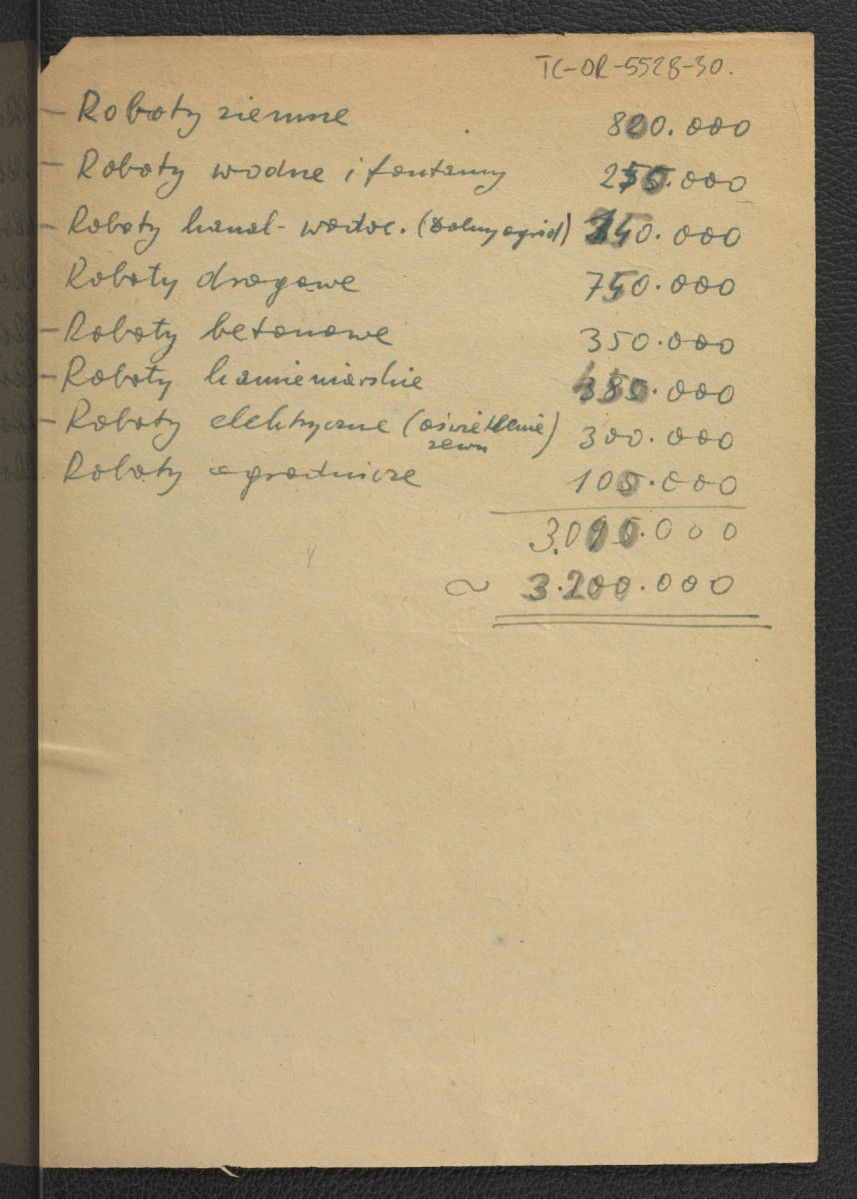 TC-OR-5528-30.
- Roboty ziemne 800.000
- Roboty wodne i fontanny 250.000
- Roboty kanal- wodoc. (dolny ogród) 140.000
Roboty drogowe 750.000
- Roboty betonowe 350.000
- Roboty kamieniarskie .000
- Roboty elektryczne (oświetlenie zewn) 300.000
Roboty ogrodnicze 105.000
3.095.000
~ 3.200.000